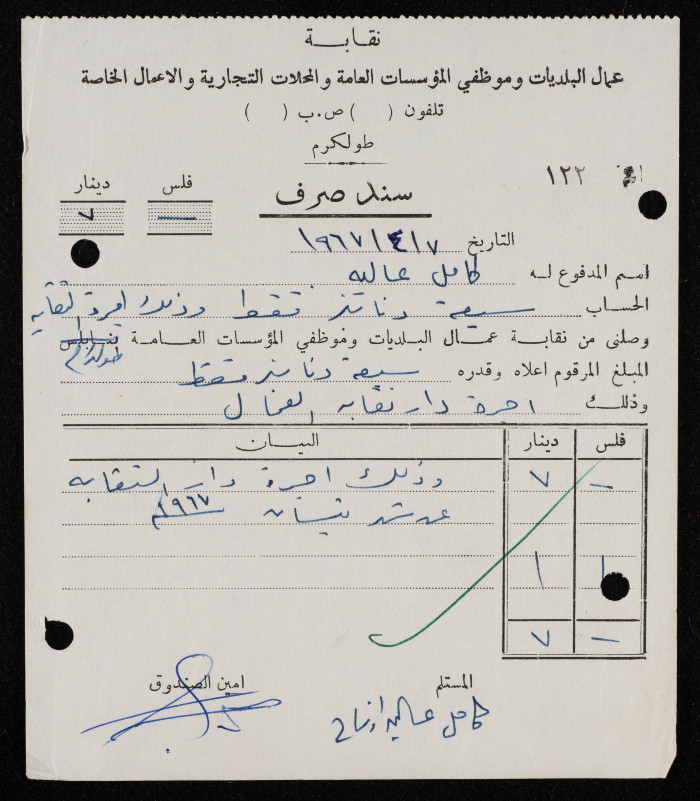 نقابة
عمال البلديات وموظفي المؤسسات العامة والمحلات التجارية والاعمال الخاصة
تلفون ( ) ص.ب ( )
طولكرم
١٢٢
سند صرف
فلس دينار
— ٧
التاريخ ٧/٤/١٩٦٧
اسم المدفوع له كامل عاليه
الحساب سبعة دنانير فقط وذلك اجرة النقابه
وصلني من نقابة عمال البلديات وموظفي المؤسسات العامة نابلس طولكرم
المبلغ المرقوم اعلاه وقدره سبعة دنانير فقط
وذلك اجرة دار نقابه العمال
فلس دينار البيان
— ٧ وذلك اجرة دار النقابه
عن شهر نيسان ١٩٦٧م
— ٧
المستلم امين الصندوق
كامل عاليه